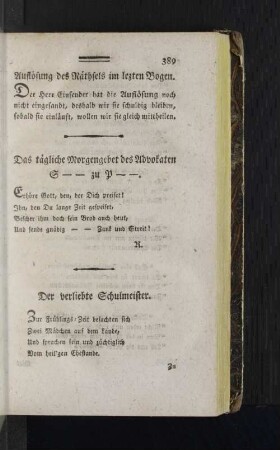 389
Auflösung des Räthsels im lezten Bogen.
Der Herr Einsender hat die Auflösung noch
nicht eingesandt, deshalb wir sie schuldig bleiben,
sobald sie einläuft, wollen wir sie gleich mittheilen.
Das tägliche Morgengebet des Advokaten
S — — zu P — —.
Erhöre Gott, den, der Dich preiset!
Ihn, den Du lange Zeit gespeiset,
Bescher ihm doch sein Brod auch heut,
Und sende gnädig — — Zank und Streit!
R.
Der verliebte Schulmeister.
Zur Frühlings-Zeit belachten sich
Zwei Mädchen auf dem Lande,
Und sprachen fein und züchtiglich
Vom heil'gen Ehestande.
Zu